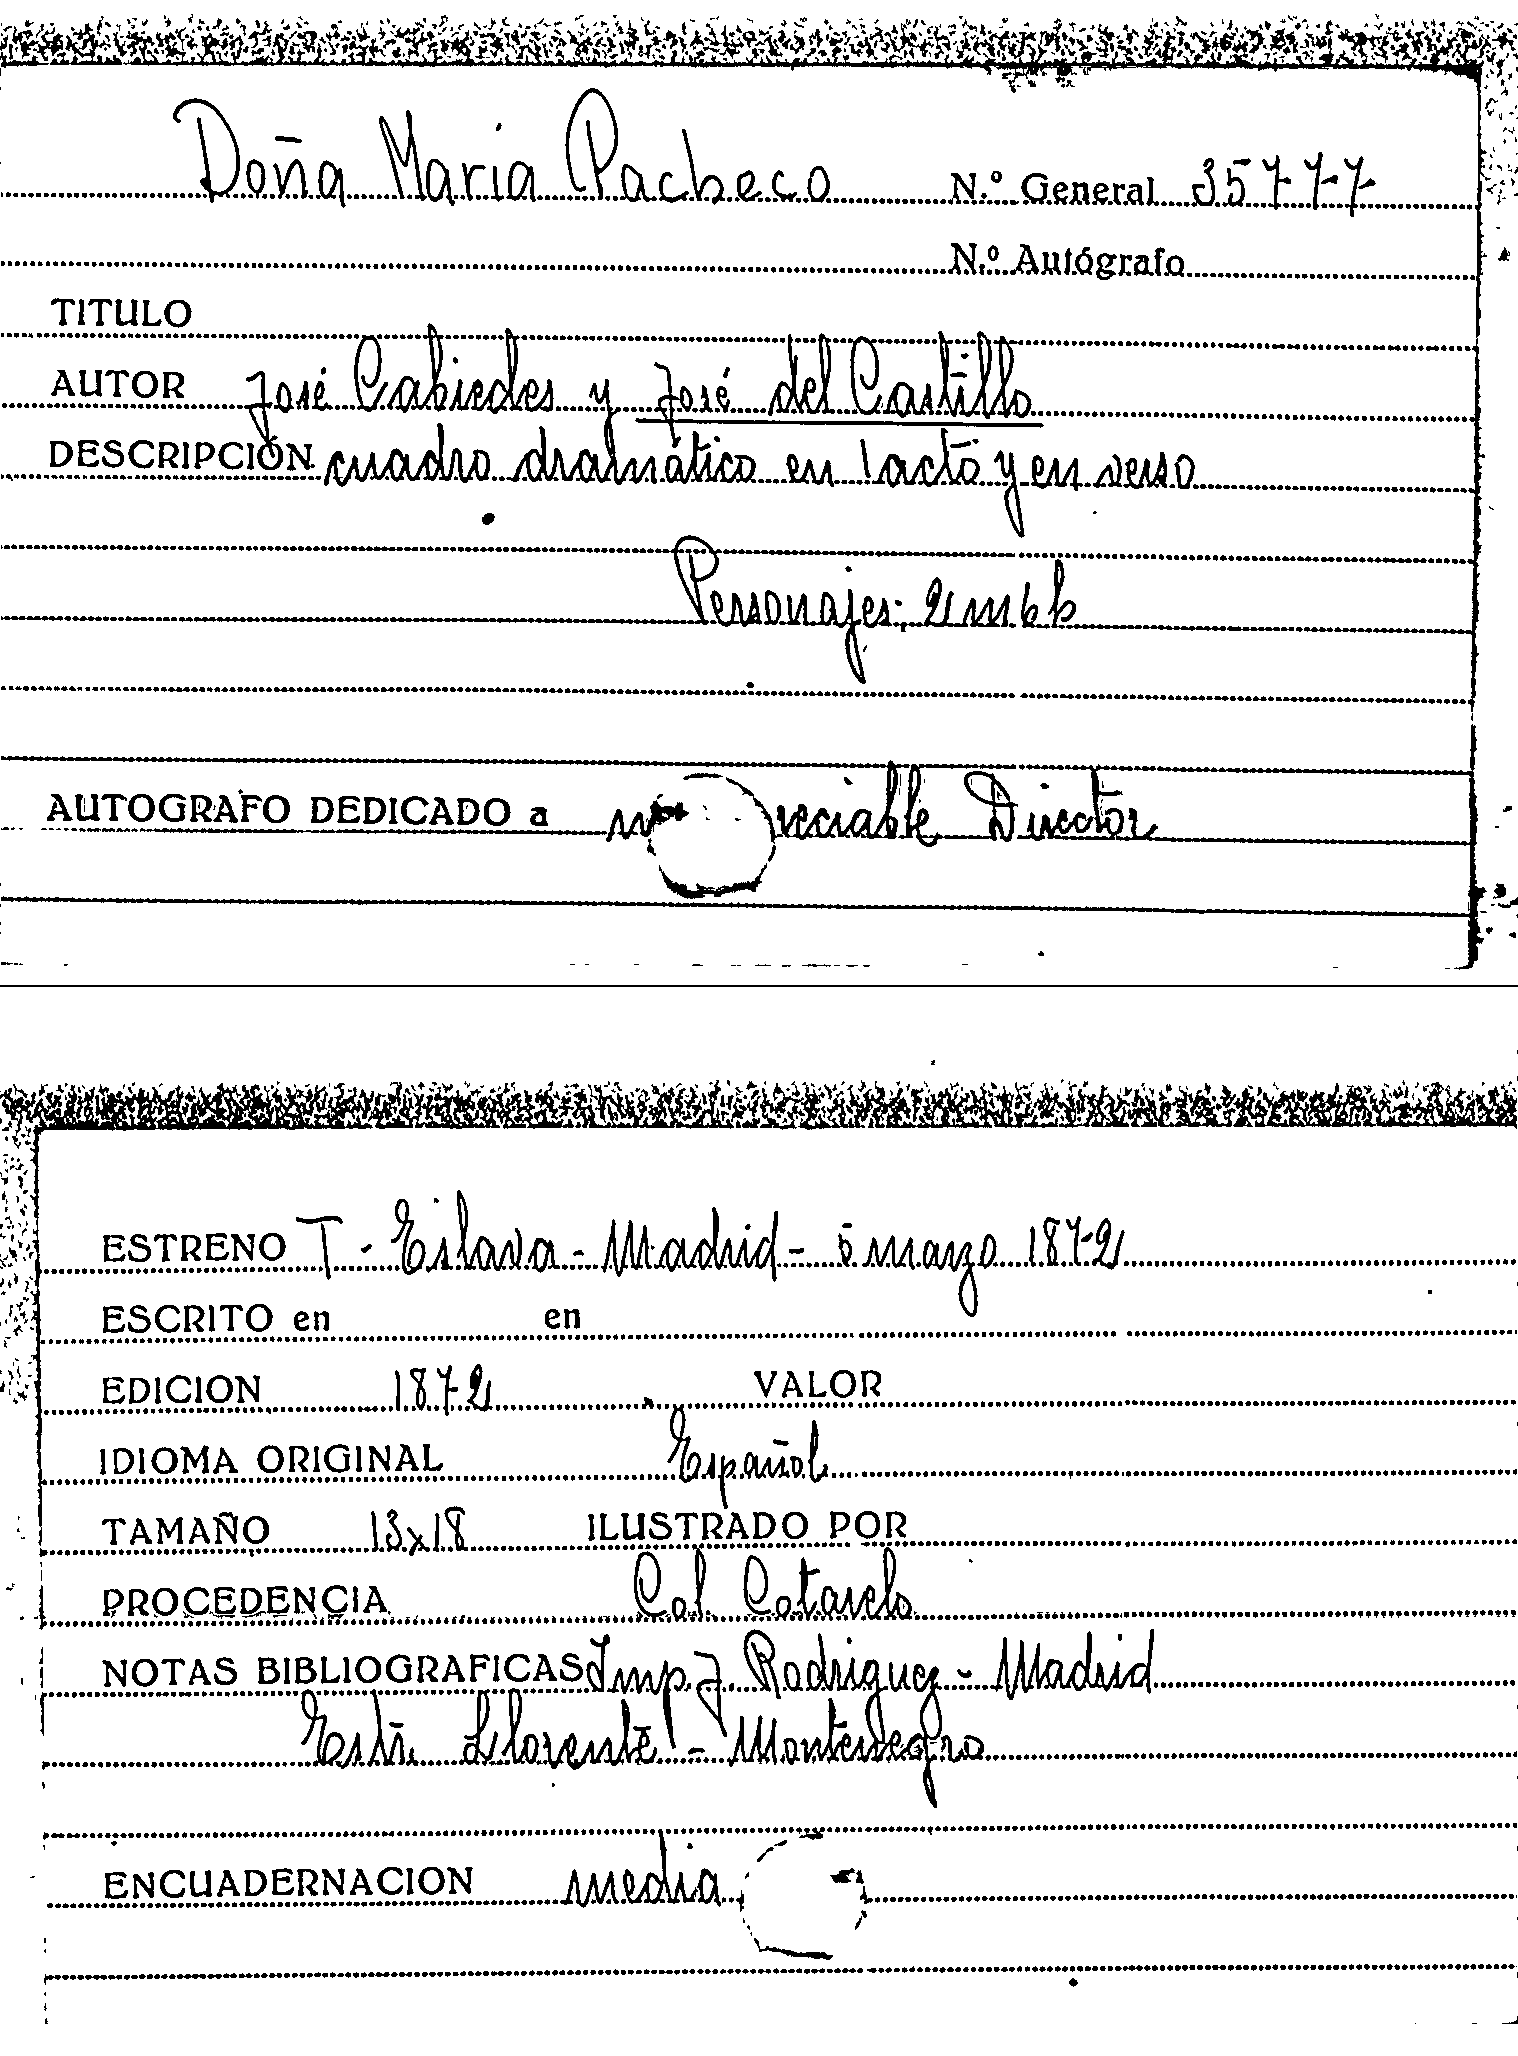 Doña Maria Pacheco N.º General 35777
N.º Autógrafo
TITULO
AUTOR José Cabiedes y José del Castillo
DESCRIPCIÓN cuadro dramático en 1 acto y en verso
Personajes: 2 m 6 h
AUTOGRAFO DEDICADO a reciable Director
ESTRENO T. Eslava - Madrid - 5 marzo 1872
ESCRITO en en
EDICION 1872 VALOR
IDIOMA ORIGINAL Español
TAMAÑO 13x18 ILUSTRADO POR
PROCEDENCIA Col. Cotarelo
NOTAS BIBLIOGRAFICAS Imp. J. Rodriguez - Madrid
Llorente - Montenegro
ENCUADERNACION media